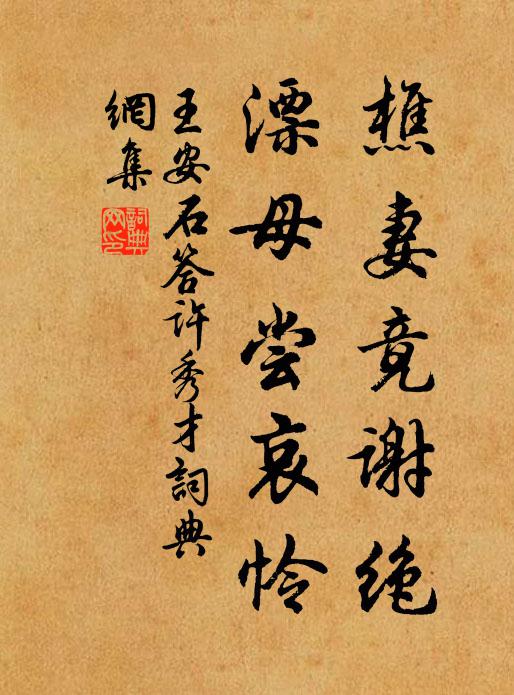 樵妻竟谢绝
漂母尝哀怜
王安石答许秀才詞典
網集
詞典網印